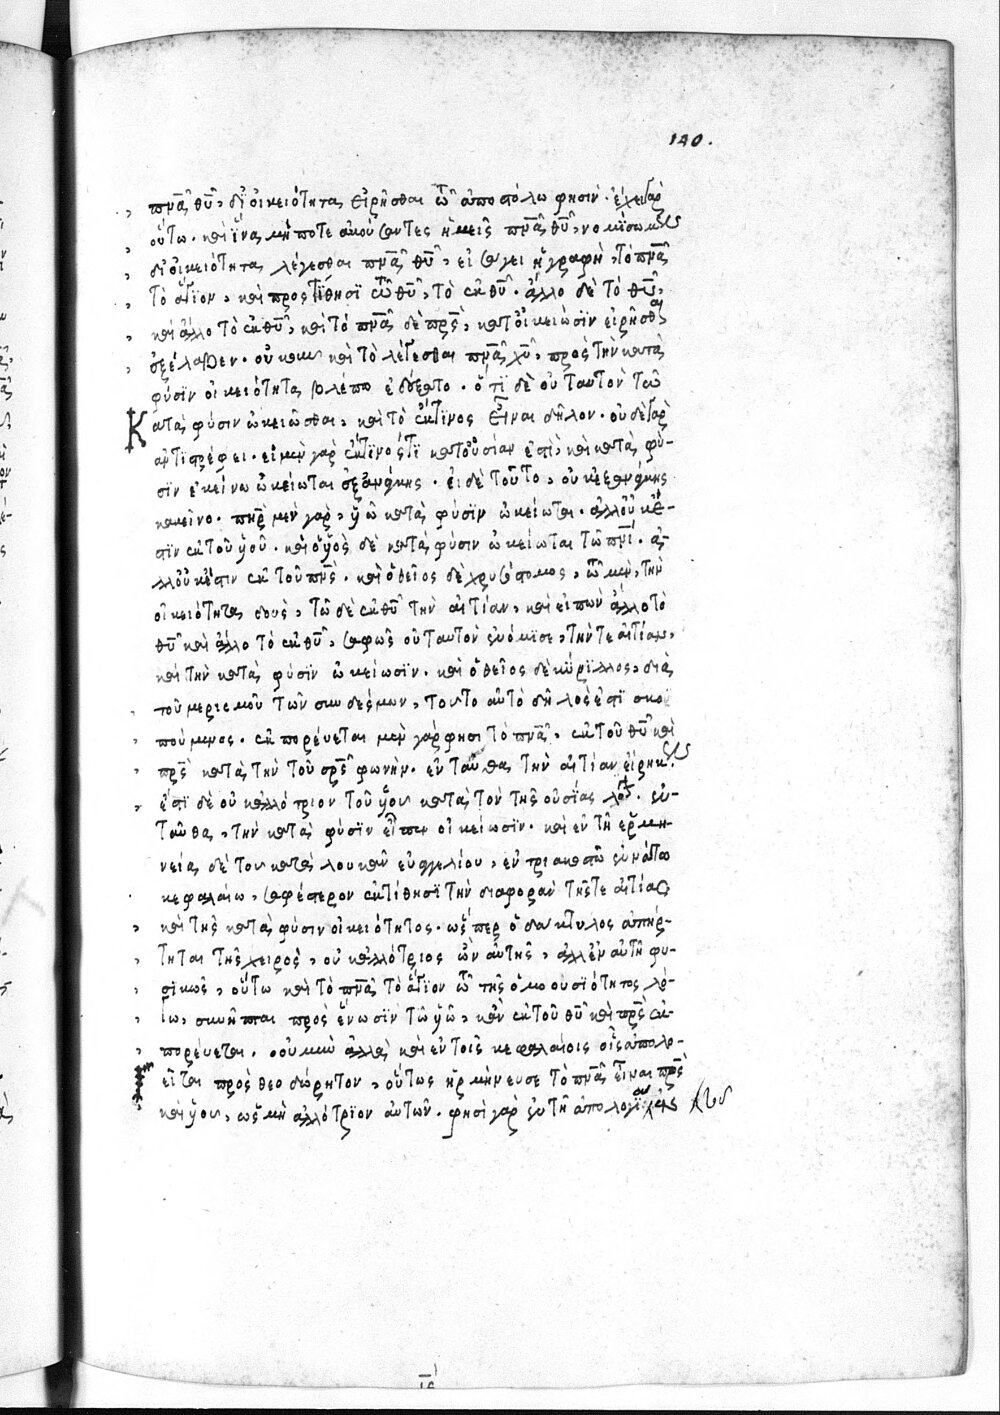 140.
πν̅α̅ θυ̅, δι οἰκειότητα εἰρῆσθαι τῶ ἀποστόλω φησὶν. ἔχει γὰρ
οὕτω. καὶ ἵνα μήποτε ἀκούσαντες ἡμεῖς πν̅α̅ θυ̅, νομίσωμεν
δι οἰκειότητα λέγεσθαι πν̅α̅ θυ̅, εἰσάγει ἡ γραφὴ, τὸ πν̅α̅
τὸ ἅγιον, καὶ προστίθησι τῶ θυ̅, τὸ ἐκ θυ̅. ἄλλο δὲ τὸ θυ̅,
καὶ ἄλλο τὸ ἐκ θυ̅, καὶ τὸ πν̅α̅ δὲ πρ̅ς̅, κατ οἰκείωσϊν εἰρῆσθαι
ἐξέλαβεν. οὐκοῦν καὶ τὸ λέγεσθαι πν̅α̅ χυ̅, πρὸς τὴν κατὰ
φύσϊν οἰκειότητα βλέπον ἐδέξατο. ὅτι δὲ οὐ ταυτὸν τῶ
Κατὰ φύσιν ὠκειῶσθαι, καὶ τὸ ἔκ τινος εἶναι δῆλον. οὐδὲ γὰρ
ἀντιστρέφει. εἰ μὲν γὰρ ἔκ τινός τϊ κατ οὐσίαν ἐστὶ, καὶ κατὰ φύ-
σϊν ἐκείνω ὠκείωται ἐξανάγκης. εἰ δὲ τοῦτο, οὐκ ἐξανάγκης
κακεῖνο. πη̅ρ̅ μὲν γὰρ, υἱῶ κατὰ φύσϊν ὠκείωται. ἀλλ οὐκ ἔ-
στϊν ἐκ τοῦ υἱοῦ. καὶ ὁ υἱὸς δὲ κατὰ φύσιν ὠκείωται τῶ πν̅ι̅. ἀ-
λλ οὐκ ἔστιν ἐκ τοῦ πν̅ς̅. καὶ ὁ θεῖος δὲ χρυσόστομος, τῶ μὲν, τὴν
οἰκειότητα δοὺς, τῶ δὲ ἐκ θυ̅ τὴν αἰτίαν, καὶ εἰπὼν ἄλλο τὸ
θυ̅ καὶ ἄλλο τὸ ἐκ θυ̅, σαφῶς οὐ ταυτὸν ἐνόμισε, τήν τε αἰτίαν,
καὶ τὴν κατὰ φύσϊν ὠκείωσϊν. καὶ ὁ θεῖος δὲ κύρϊλλος, διὰ
τοῦ μερισμοῦ τῶν συνδέσμων, τουτο αὐτὸ δῆλός ἐστϊ σκο
πούμενος. ἐκπορεύεται μὲν γάρ φησι τὸ πν̅α̅, ἐκ τοῦ θυ̅ καὶ
πρ̅ς̅ κατὰ τὴν τοῦ σρ̅ς̅ φωνήν. ἐνταῦθα τὴν αἰτίαν εἴρηκεν.
ἔστϊ δὲ οὐκ ἀλλότριον τοῦ υἱου κατὰ τὸν τῆς οὐσίας λόγον. ἐν-
ταῦθα, τὴν κατὰ φύσϊν εἶπεν οἰκείωσϊν. καὶ ἐν τῆ ἑρμη-
νεία δὲ του κατὰ λουκᾶν εὐαγγελίου, ἐν τριακοστῶ ἐννάτω
κεφαλαίω, σαφέστερον ἐκτίθησϊ τὴν διαφορὰν τῆς τε αἰτίας
καὶ τῆς κατὰ φύσιν οἰκειότητος. ὥσπερ ὁ δάκτυλος ἀπήρ-
τηται τῆς χειρὸς, οὐκ ἀλλότριος ὢν αὐτῆς, ἀλλ ἐν αὐτῆ φυ-
σϊκῶς, οὕτω καὶ τὸ πν̅α̅ τὸ ἅγϊον τῶ τῆς ὁμοουσϊότητος λό-
γω, συνῆπται πρὸς ἕνωσϊν τῶ υἱῶ, κἂν ἐκ τοῦ θυ̅ καὶ πρ̅ς̅ ἐκ-
πορεύεται. οὐ μὴν ἀλλὰ καὶ ἐν τοῖς κεφαλαίοις οἷς ἀπολο-
εῖται πρὸς θεοδώρητον, οὕτως ἡρμήνευσε τὸ πν̅α̅ εἶναι πρ̅ς̅
καὶ υἱου, ὡς μὴ ἀλλότρϊον αὐτῶν. φησὶ γὰρ ἐν τῆ ἀπολογία